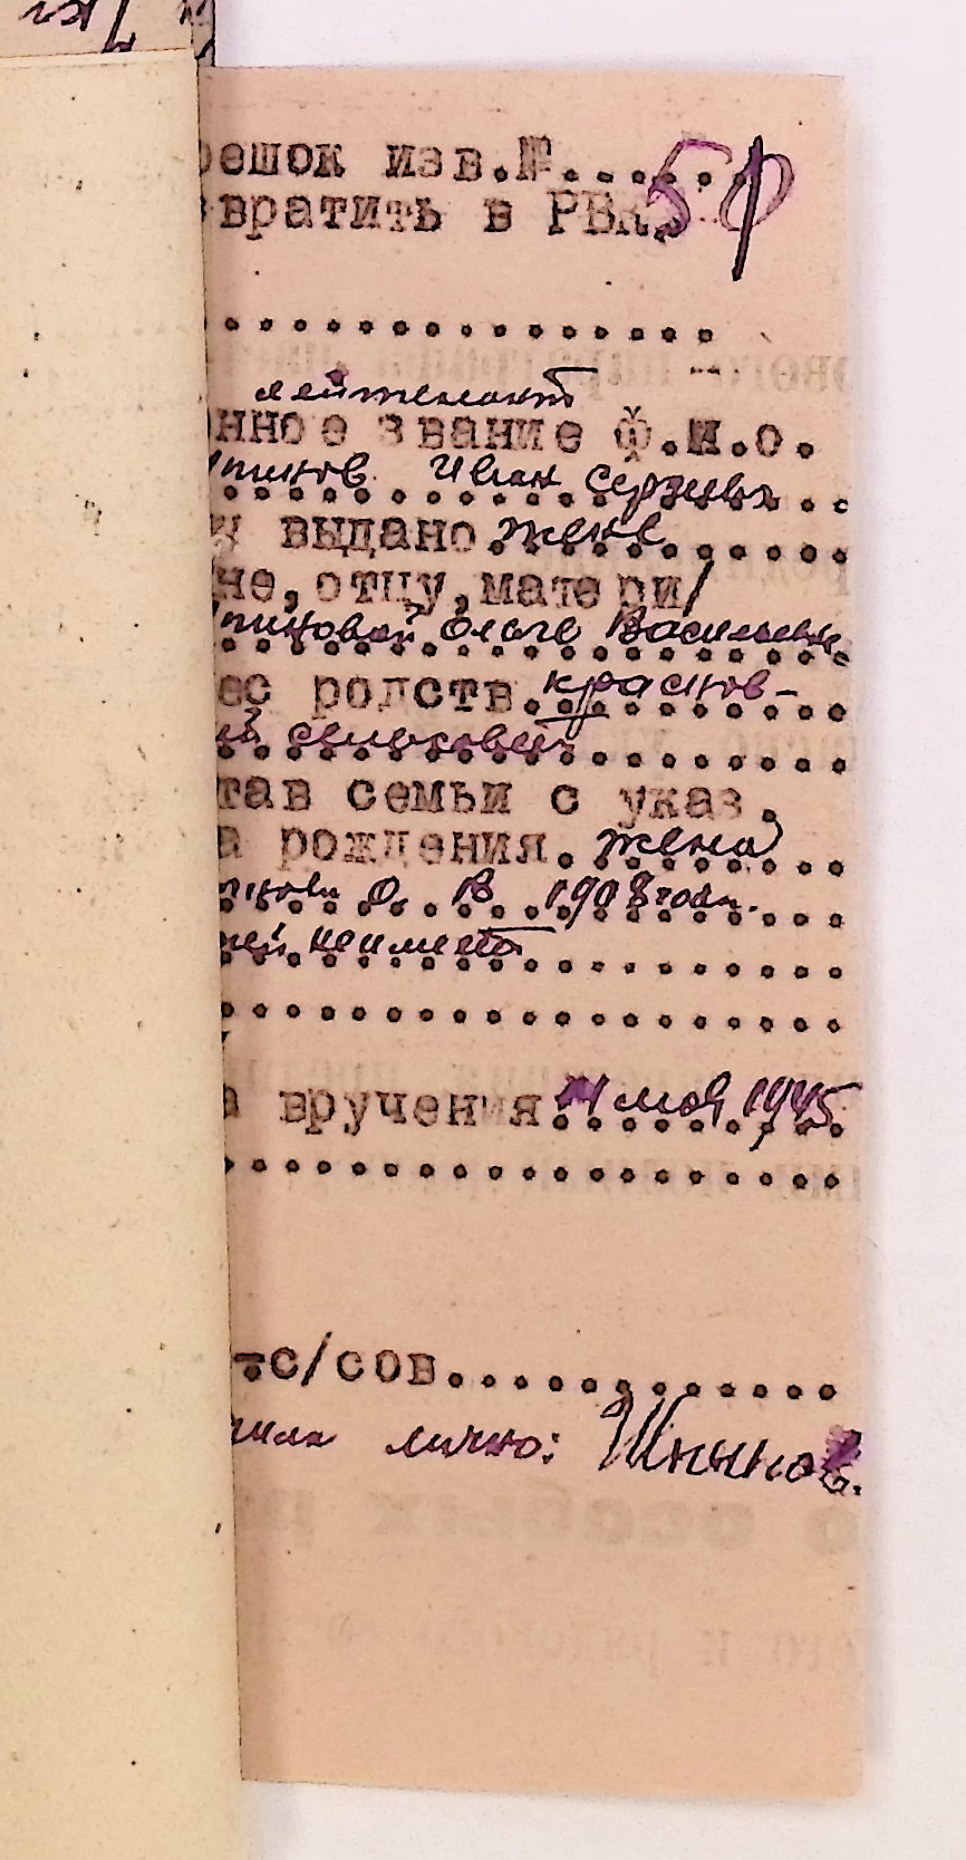 решок изв.№...... 5 ф
звратить в РВК.
................
лейтенант
нное звание ф.и.о.
Иван Сергеевич
и выдано жене
не, отцу, матери/
Ольге Васильевне
ес родств. Краснов-
ий сельсовет
тав семьи с указ.
а рождения. жена
О. В. 1908 года.
тей не имеет
...................
а вручения 11 мая 1945
...................
-с/сов............
чила лично: